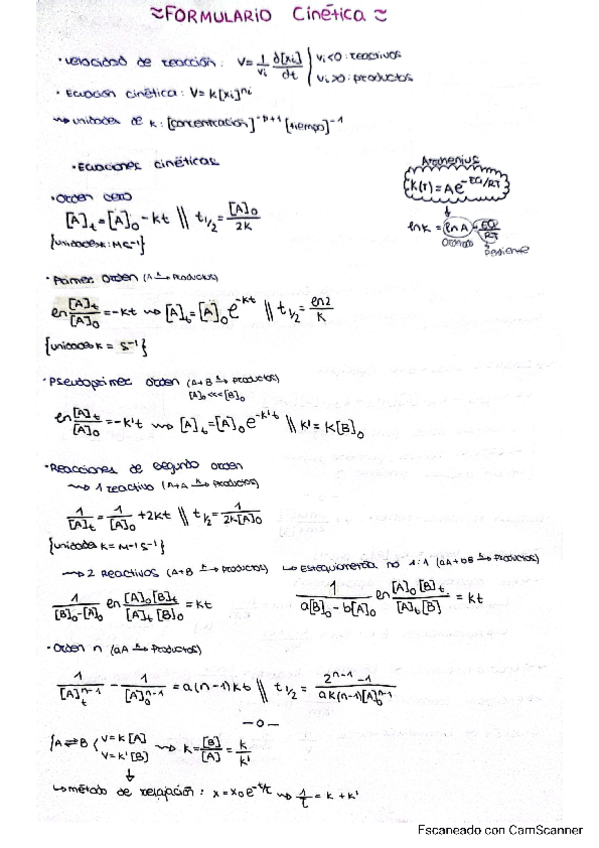 ≈FORMULARIO Cinética≈
· velocidad de reacción: V= 1/νi d[xi]/dt { νi<0: reactivos
νi>0: productos
· Ecuación cinética: V= k[xi]^ni
unidades de k: [concentración]^-n+1 [tiempo]^-1
· Ecuaciones cinéticas
Arrhenius
K(T)=Ae^-Ea/RT
lnk = lnA - Ea/RT
Ordenada Pendiente
· Orden cero
[A]t=[A]0-kt // t1/2= [A]0/2k
{unidades k: M s^-1}
· Primer orden (A k→ Productos)
ln [A]t/[A]0 =-kt ⇝ [A]t=[A]0 e^-kt // t1/2= ln2/k
{unidades k = s^-1}
· Pseudoprimer orden (A+B k→ productos)
[A]0 <<< [B]0
ln [A]t/[A]0 =-k't ⇝ [A]t=[A]0 e^-k't // k'= k[B]0
· Reacciones de segundo orden
⇝ 1 reactivo (A+A k→ productos)
1/[A]t = 1/[A]0 +2kt // t1/2= 1/2k[A]0
{unidades k= M^-1 s^-1}
⇝ 2 Reactivos (A+B k→ productos) ↳ Estequiometría no 1:1 (aA+bB k→ productos)
1/[B]0-[A]0 ln [A]0[B]t/[A]t[B]0 = kt 1/a[B]0-b[A]0 ln [A]0[B]t/[A]t[B] = kt
· Orden n (aA k→ Productos)
1/[A]t^n-1 - 1/[A]0^n-1 = a(n-1)kt // t1/2= 2^n-1 -1/ak(n-1)[A]0^n-1
—o—
{A⇌B { V=k[A]
V=k'[B] ⇝ K= [B]/[A] = k/k'
↳método de relajación: x=x0e^-t/τ ⇝ 1/τ = k+k'
Escaneado con CamScanner